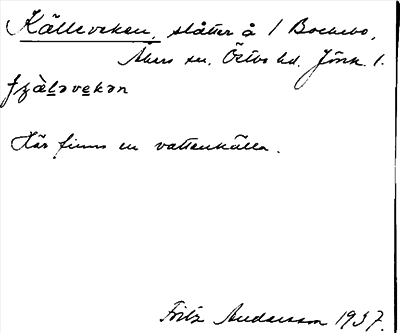 Källeveken, slåtter å 1 Bockebo,
Åkers sn. Östbo hd. Jönk. l.
Här finns en vattenkälla.
Fritz Andersson 1937.